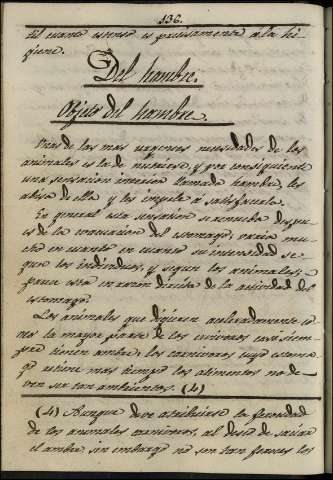 136.
til cuanto menos es precisamente á la hi-
giene.
Del hambre.
Objeto del hambre.
Una de las mas urgentes necesidades de los
animales es la de nutrirse, y por consiguiente
una sensacion interior llamada hambre, les
abisa de ella y les impele a satisfacerla.
En general esta sensacion se aumenta despues
de la vacuacion del estomago, varia mu-
cho en cuanto en cuanto su intensidad se-
gun los individuos, y segun los animales;
parece estar en razon directa de la actividad del
estomago.
Los animales que digieren aceleradamente
mos la mayor parte de los civiros casi siem-
pre tienen ambre, los carnivoros cuyo estoma-
go retiene mas tiempo los alimentos no de-
ven ser tan ambrientos. (4)
(4) Aunque deve atribuirse la ferocidad
de los animales carnivoros, al deseo de saciar
el ambre sin embargo no son tan feroces los